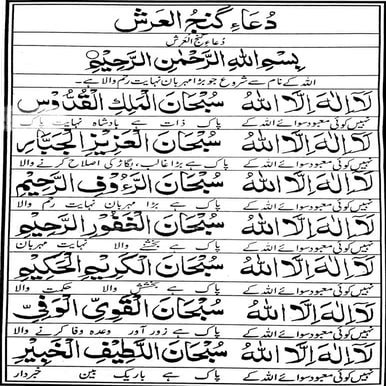 دُعَاءِ گنجُ العَرش
دُعاءِ گنجُ العَرش
بِسْمِ اللهِ الرَّحْمٰنِ الرَّحِيْمِ
اللہ کے نام سے شروع جو بڑا مہربان نہایت رحم والا ہے۔
لَآ اِلٰهَ اِلَّا اللهُ سُبْحَانَ الْمَلِكِ الْقُدُّوْسِ
نہیں کوئی معبود سوائے اللہ کے پاک ذات ہے بادشاہ نہایت پاک
لَآ اِلٰهَ اِلَّا اللهُ سُبْحَانَ الْعَزِيْزِ الْجَبَّارِ
نہیں کوئی معبود سوائے اللہ کے پاک ہے بڑا غالب، بگاڑ کی اصلاح کرنے والا
لَآ اِلٰهَ اِلَّا اللهُ سُبْحَانَ الرَّءُوْفِ الرَّحِيْمِ
نہیں کوئی معبود سوائے اللہ کے پاک ہے مہربان نہایت رحم والا
لَآ اِلٰهَ اِلَّا اللهُ سُبْحَانَ الْغَفُوْرِ الرَّحِيْمِ
نہیں کوئی معبود سوائے اللہ کے پاک ہے بخشنے والا نہایت مہربان
لَآ اِلٰهَ اِلَّا اللهُ سُبْحَانَ الْكَرِيْمِ الْحَكِيْمِ
نہیں کوئی معبود سوائے اللہ کے پاک ہے بخشنے والا حکمت والا
لَآ اِلٰهَ اِلَّا اللهُ سُبْحَانَ الْقَوِيِّ الْوَفِيِّ
نہیں کوئی معبود سوائے اللہ کے پاک ہے زور آور وعدہ وفا کرنے والا
لَآ اِلٰهَ اِلَّا اللهُ سُبْحَانَ اللَّطِيْفِ الْخَبِيْرِ
نہیں کوئی معبود سوائے اللہ کے پاک ہے باریک بین خبردار